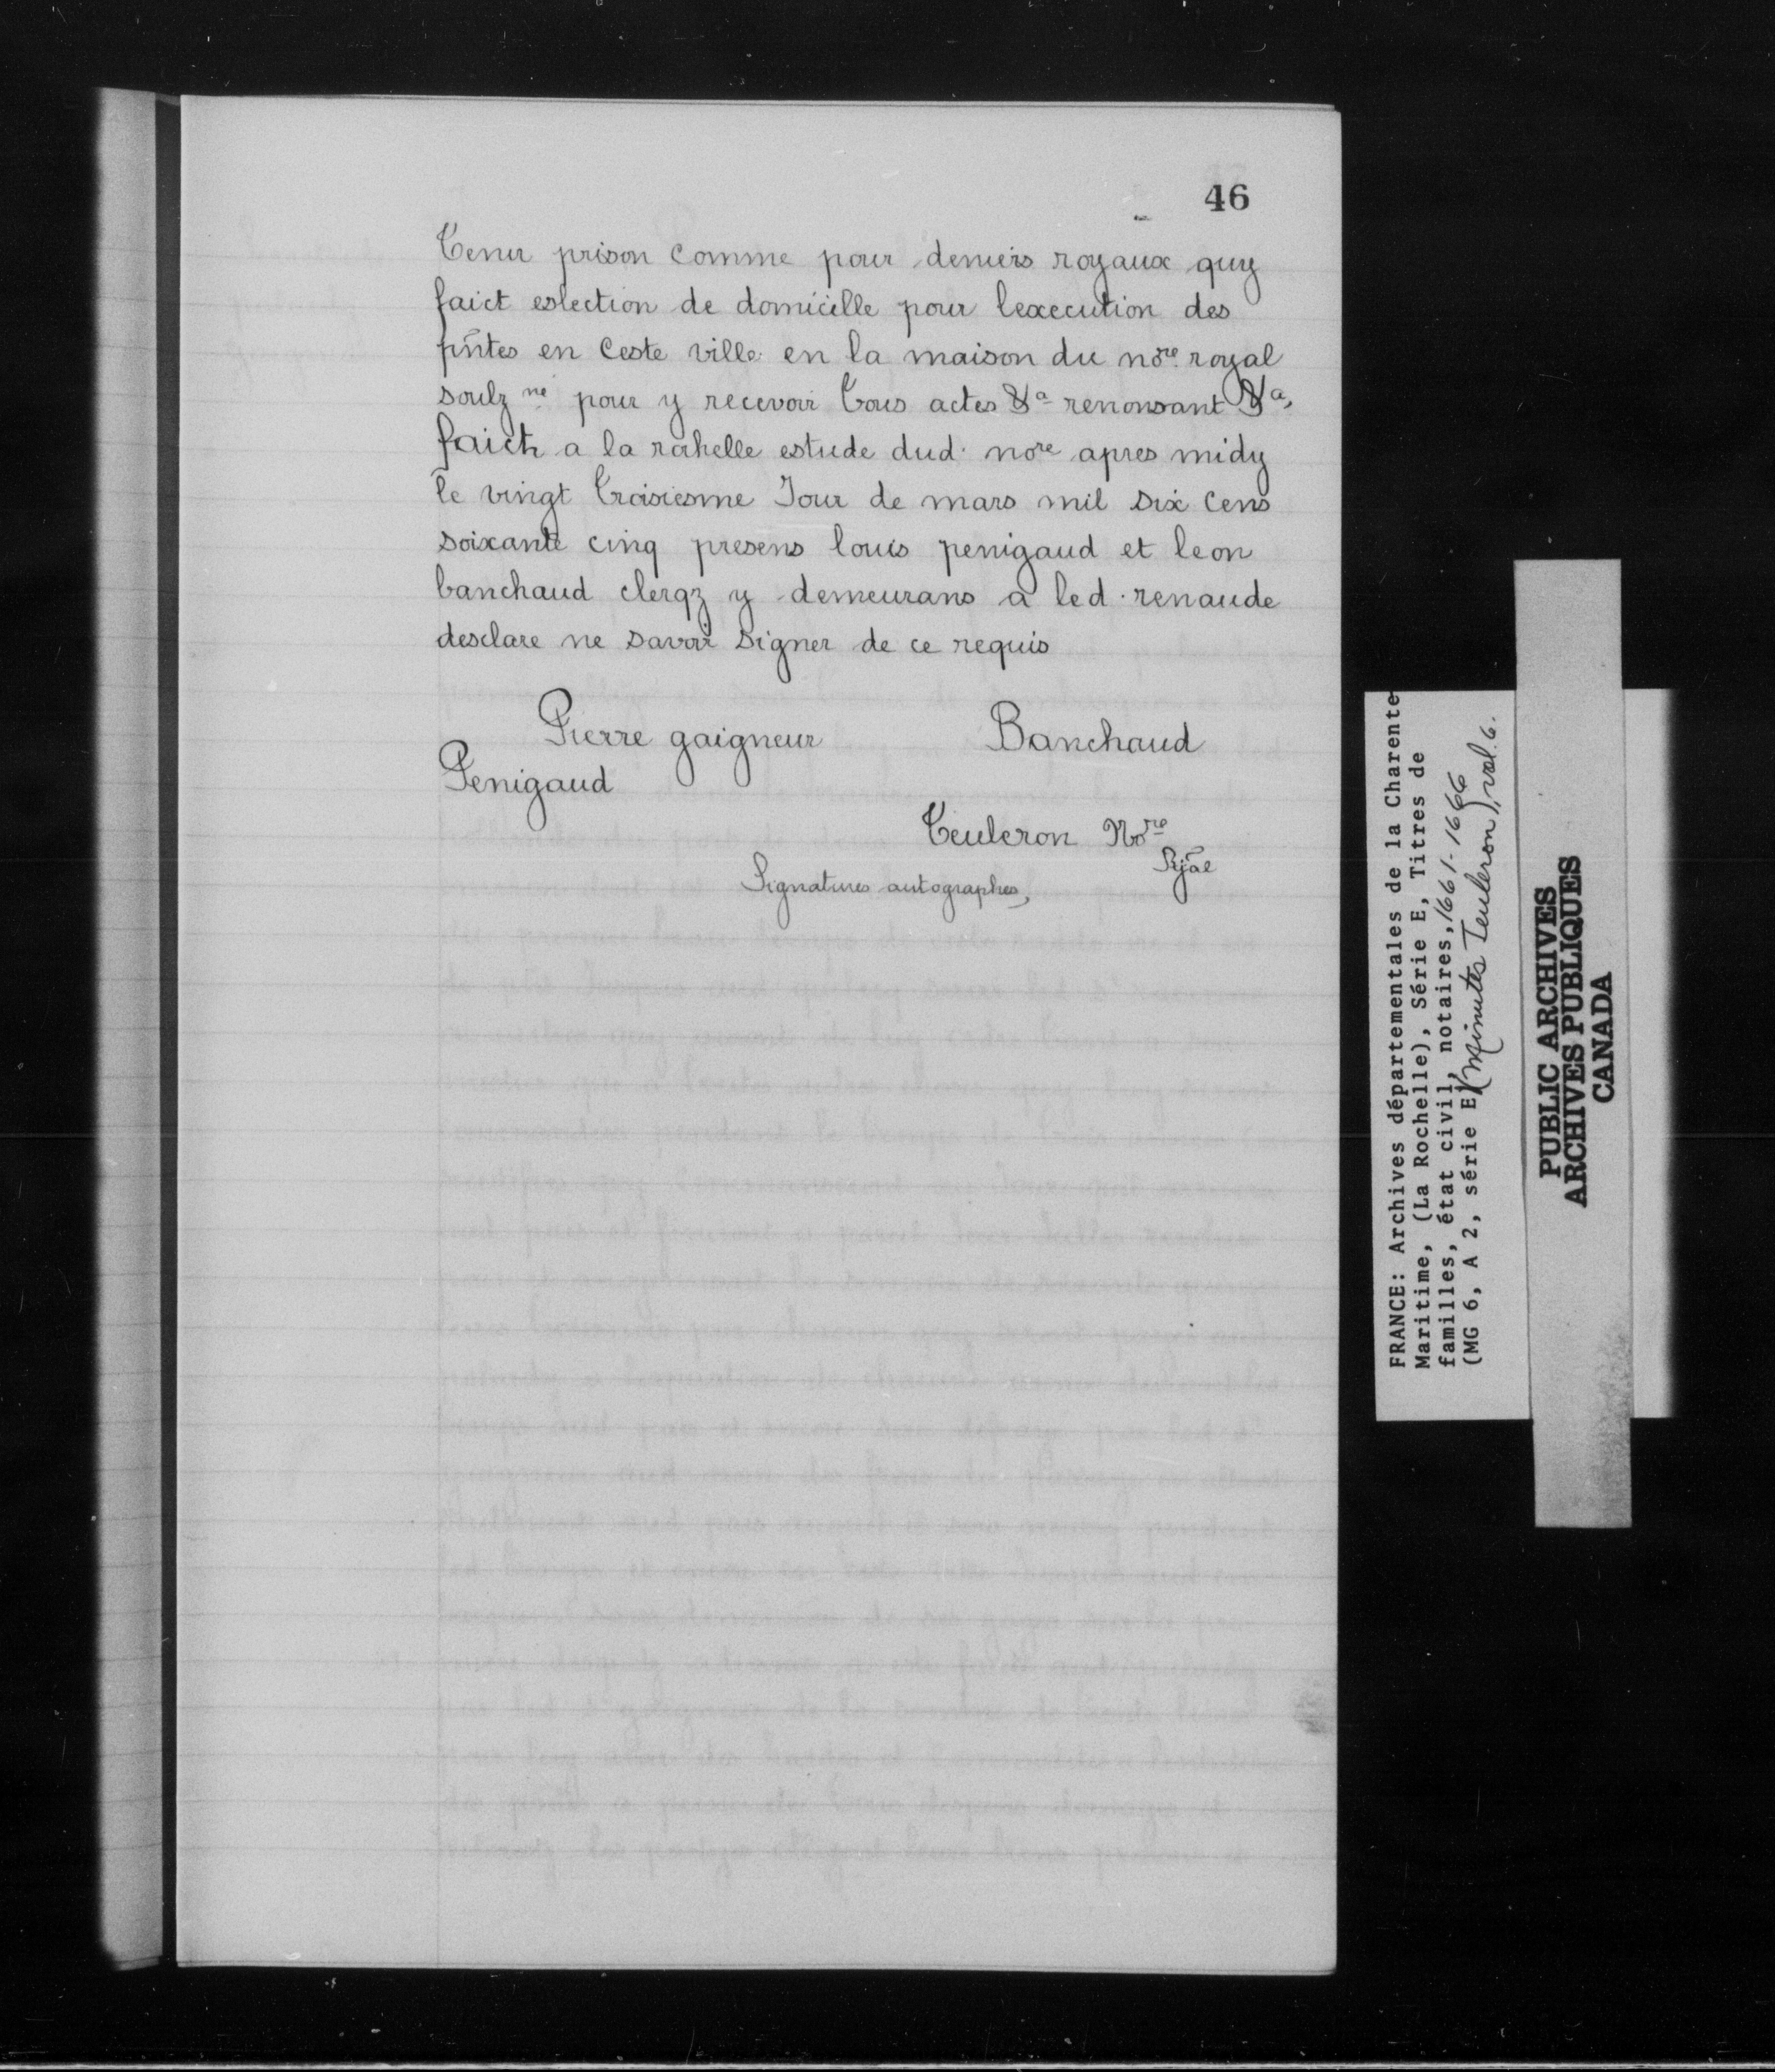 46
Tenir prison comme pour deniers royaux quy
faict eslection de domicille pour lexecution des
pñtes en Ceste ville en la maison du nõre royal
soulz né pour y recevoir Tous actes &a renonsant &a,
faict a la rochelle estude dud. nore apres midy
le vingt Troisiesme Jour de mars mil six Cens
soixante cinq presens louis penigaud et leon
banchaud clerqz y demeurans a led. renaude
desclare ne savoir signer de ce requis
Pierre gaigneur Banchaud
Penigaud
Teuleron Nore
Rjal
Signatures autographes,
FRANCE: Archives départementales de la Charente
Maritime, (La Rochelle), Série E, Titres de
familles, état civil, notaires, 1661-1666
(MG 6, A 2, série E) (Minutes Teuleron), vol. 6.
PUBLIC ARCHIVES
ARCHIVES PUBLIQUES
CANADA